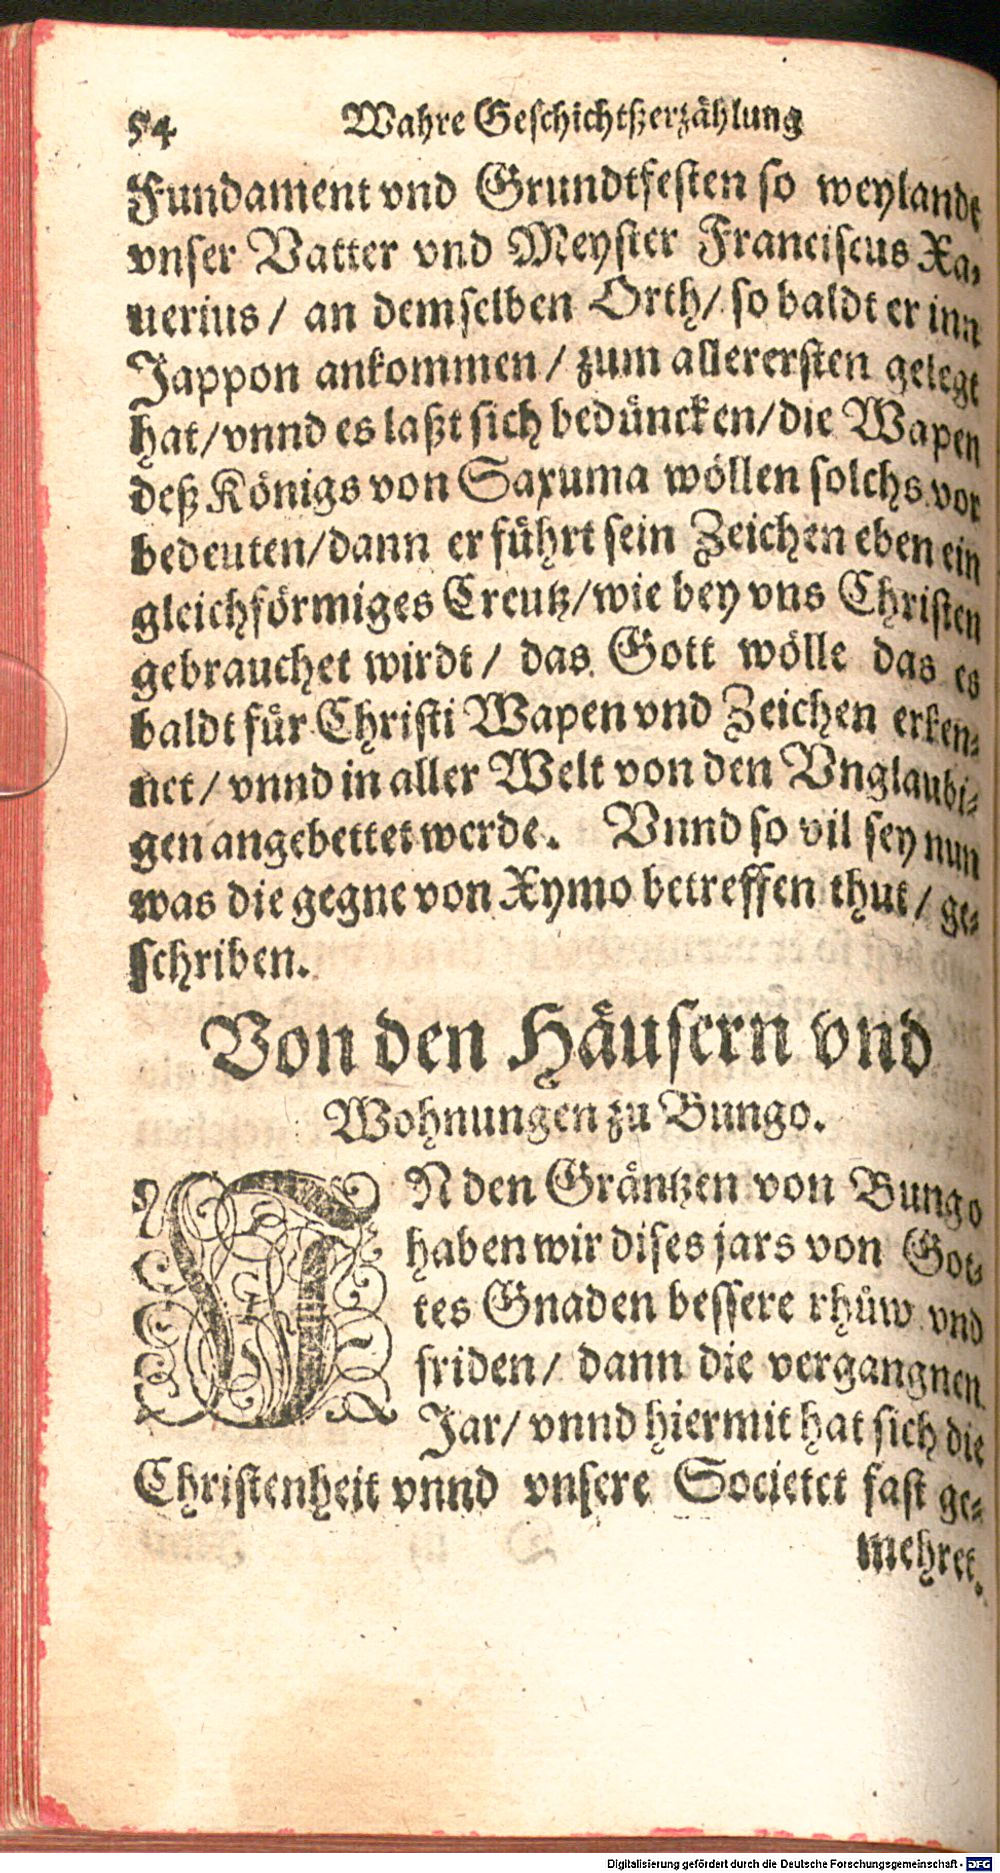 54 Wahre Geschichtßerzählung
Fundament vnd Grundtfesten so weylandt
vnser Vatter vnd Meyster Franciscus Xa-
uerius / an demselben Orth / so baldt er inn
Jappon ankommen / zum allerersten gelegt
hat / vnnd es laßt sich bedüncken / die Wapen
deß Königs von Saxuma wöllen solchs vor
bedeuten / dann er führt sein Zeichen eben ein
gleichförmiges Creutz / wie bey vns Christen
gebrauchet wirdt / das Gott wölle das es
baldt für Christi Wapen vnd Zeichen erken-
net / vnnd in aller Welt von den Vnglaubi-
gen angebettet werde. Vnnd so vil sey nun
was die gegne von Xymo betreffen thut / ge-
schriben.
Von den Häusern vnd
Wohnungen zu Bungo.
IN den Gräntzen von Bungo
haben wir dises jars von Got-
tes Gnaden bessere rhüw vnd
friden / dann die vergangnen
Jar / vnnd hiermit hat sich die
Christenheit vnnd vnsere Societet fast ge-
mehret.
Digitalisierung gefördert durch die Deutsche Forschungsgemeinschaft - DFG